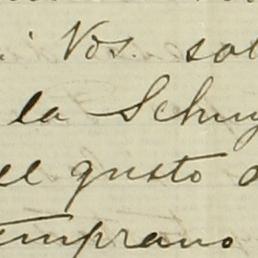 Vos. sol
la Schuy
el gusto
temprano